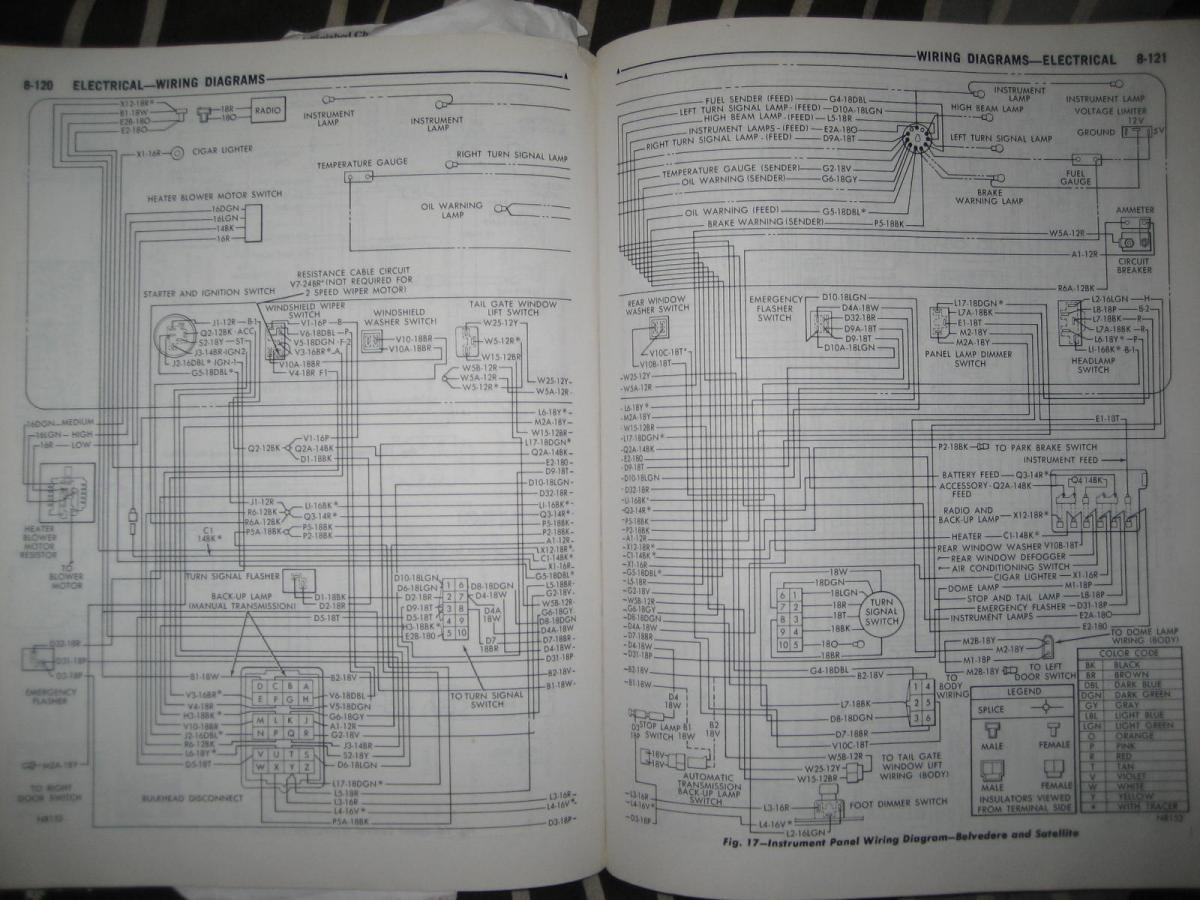 8-120 ELECTRICAL—WIRING DIAGRAMS
X12-18R*
B1-18W
E2B-18O
E2-18O
18R
18O
RADIO
INSTRUMENT
LAMP
INSTRUMENT
LAMP
X1-16R
CIGAR LIGHTER
TEMPERATURE GAUGE
RIGHT TURN SIGNAL LAMP
HEATER BLOWER MOTOR SWITCH
16DGN
16LGN
14BK
16R
OIL WARNING
LAMP
RESISTANCE CABLE CIRCUIT
V7-24BR*(NOT REQUIRED FOR
2 SPEED WIPER MOTOR)
STARTER AND IGNITION SWITCH
WINDSHIELD WIPER
SWITCH
WINDSHIELD
WASHER SWITCH
TAIL GATE WINDOW
LIFT SWITCH
J1-12R B-1
Q2-12BK ACC
S2-18Y ST
J3-14BR-IGN2
J2-16DBL* IGN-1
G5-18DBL*
V1-16P B
V6-18DBL P
V5-18DGN F-2
V3-16BR* A
V10A-18BR
V4-18R F1
V10-18BR
V10A-18BR
W25-12Y
W5-12R*
W15-12BR
W5B-12R
W5A-12R
W5-12R*
W25-12Y
W5A-12R
16DGN—MEDIUM
16LGN—HIGH
16R—LOW
HEATER
BLOWER
MOTOR
RESISTOR
TO
BLOWER
MOTOR
V1-16P
Q2-12BK Q2A-14BK
D1-18BK
L6-18Y*
M2A-18Y
W15-12BR
L17-18DGN*
Q2A-14BK
E2-18O
D9-18T
D10-18LGN
D32-18R
LI-16BK*
Q3-14R*
P5-18BK
P2-18BK
A1-12R
X12-18R*
C1-14BK*
X1-16R
G5-18DBL*
L5-18BR
G2-18V
W5B-12R
G6-18GY
D8-18DGN
D4A-18W
D7-18BR
D4-18W
D31-18P
B2-18V
B1-18W
J1-12R
R6-12BK
R6A-12BK
P5A-18BK
LI-16BK*
P5-18BK
P2-18BK
C1
14BK*
TURN SIGNAL FLASHER
BACK-UP LAMP
(MANUAL TRANSMISSION)
D1-18BK
D2-18R
D5-18T
D10-18LGN
D6-18LGN
D2-18R
D9-18T
D5-18T
H3-18BK*
E2B-18O
1 6
2 7
3 8
4 9
5 10
D8-18DGN
D4-18W
D4A
18W
D7
18BR
TO TURN SIGNAL
SWITCH
D32-18R
D31-18P
D3-18P
EMERGENCY
FLASHER
M2A-18Y
TO RIGHT
DOOR SWITCH
NB153
B1-18W
V3-16BR*
V4-18R
H3-18BK*
V10-18BR
J2-16DBL*
R6-12BK
L6-18Y*
D5-18T
D C B A
E F G H
M L K J
N P Q R
V U T S
W X Y Z
B2-18V
V6-18DBL
V5-18DGN
G6-18GY
A1-12R
G2-18V
J3-14BR
S2-18Y
D6-18LGN
BULKHEAD DISCONNECT
L17-18DGN*
L5-18R
L3-16R
L4-16V*
P5A-18BK
L3-16R
L4-16V*
D3-18P
WIRING DIAGRAMS—ELECTRICAL 8-121
FUEL SENDER (FEED) G4-18DBL
LEFT TURN SIGNAL LAMP-(FEED) D10A-18LGN
HIGH BEAM LAMP-(FEED) L5-18R
INSTRUMENT LAMPS-(FEED) E2A-18O
RIGHT TURN SIGNAL LAMP-(FEED) D9A-18T
TEMPERATURE GAUGE (SENDER) G2-18V
OIL WARNING (SENDER) G6-18GY
OIL WARNING (FEED) G5-18DBL*
BRAKE WARNING(SENDER) P5-18BK
INSTRUMENT
LAMP
HIGH BEAM LAMP
LEFT TURN SIGNAL LAMP
BRAKE
WARNING LAMP
INSTRUMENT LAMP
VOLTAGE LIMITER
12V
GROUND 5V
FUEL
GAUGE
AMMETER
W5A-12R
A1-12R
CIRCUIT
BREAKER
R6A-12BK
REAR WINDOW
WASHER SWITCH
V10C-18T*
V10B-18T
EMERGENCY
FLASHER
SWITCH
D10-18LGN
D4A-18W
D32-18R
D9A-18T
D9-18T
D10A-18LGN
L17-18DGN*
L7A-18BK
E1-18T
M2-18Y
M2A-18Y
PANEL LAMP DIMMER
SWITCH
L2-16LGN H
L8-18P B-2
L7-18BK R
L7A-18BK R
L6-18Y* P
LI-16BK* B-1
HEADLAMP
SWITCH
W25-12Y
W5A-12R
L6-18Y*
M2A-18Y
W15-12BR
L17-18DGN*
Q2A-14BK
E2-18O
D9-18T
D10-18LGN
D32-18R
LI-16BK*
Q3-14R*
P5-18BK
P2-18BK
A1-12R
X12-18R*
C1-14BK*
X1-16R
G5-18DBL*
L5-18R
G2-18V
W5B-12R
G6-18GY
D8-18DGN
D4A-18W
D7-18BR
D4-18W
D31-18P
B2-18V
B1-18W
E1-18T
P2-18BK TO PARK BRAKE SWITCH
INSTRUMENT FEED
BATTERY FEED Q3-14R*
ACCESSORY-Q2A-14BK
FEED
Q4 14BK
RADIO AND
BACK-UP LAMP X12-18R*
HEATER C1-14BK*
REAR WINDOW WASHER V10B-18T
REAR WINDOW DEFOGGER
AIR CONDITIONING SWITCH
CIGAR LIGHTER X1-16R
DOME LAMP M1-18P
STOP AND TAIL LAMP L8-18P
EMERGENCY FLASHER D31-18P
INSTRUMENT LAMPS E2A-18O
E2-18O
18W
18DGN
18LGN
18R
18T
18BK
18O
18BR
6 1
7 2
8 3
9 4
10 5
TURN
SIGNAL
SWITCH
M2B-18Y
M2-18Y
M1-18P
M2B-18Y
TO DOME LAMP
WIRING (BODY)
TO LEFT
DOOR SWITCH
G4-18DBL
B2-18V
L7-18BK
D8-18DGN
D7-18BR
V10C-18T
1 4
2 5
3 6
TO
BODY
WIRING
W5B-12R
W25-12Y
W15-12BR
TO TAIL GATE
WINDOW LIFT
WIRING (BODY)
D4
18W
STOP LAMP
SWITCH
B1
18W
B2
18V
18V
18V
AUTOMATIC
TRANSMISSION
BACK-UP LAMP
SWITCH
L3-16R
L4-16V*
D3-18P
L3-16R
L4-16V*
L2-16LGN
FOOT DIMMER SWITCH
LEGEND
SPLICE
MALE FEMALE
MALE FEMALE
INSULATORS VIEWED
FROM TERMINAL SIDE
COLOR CODE
BK BLACK
BR BROWN
DBL DARK BLUE
DGN DARK GREEN
GY GRAY
LBL LIGHT BLUE
LGN LIGHT GREEN
O ORANGE
P PINK
R RED
T TAN
V VIOLET
W WHITE
Y YELLOW
* WITH TRACER
NB153
Fig. 17—Instrument Panel Wiring Diagram—Belvedere and Satellite